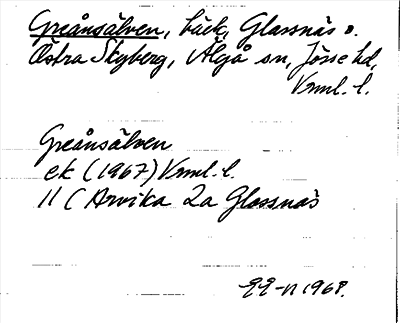 Greånsälven, bäck, Glassnäs o.
Östra Skyberg, Älgå sn, Jösse hd,
Vrml. l.
Greånsälven
ek (1967) Vrml. l.
11 C Arvika 2a Glassnäs
1968.